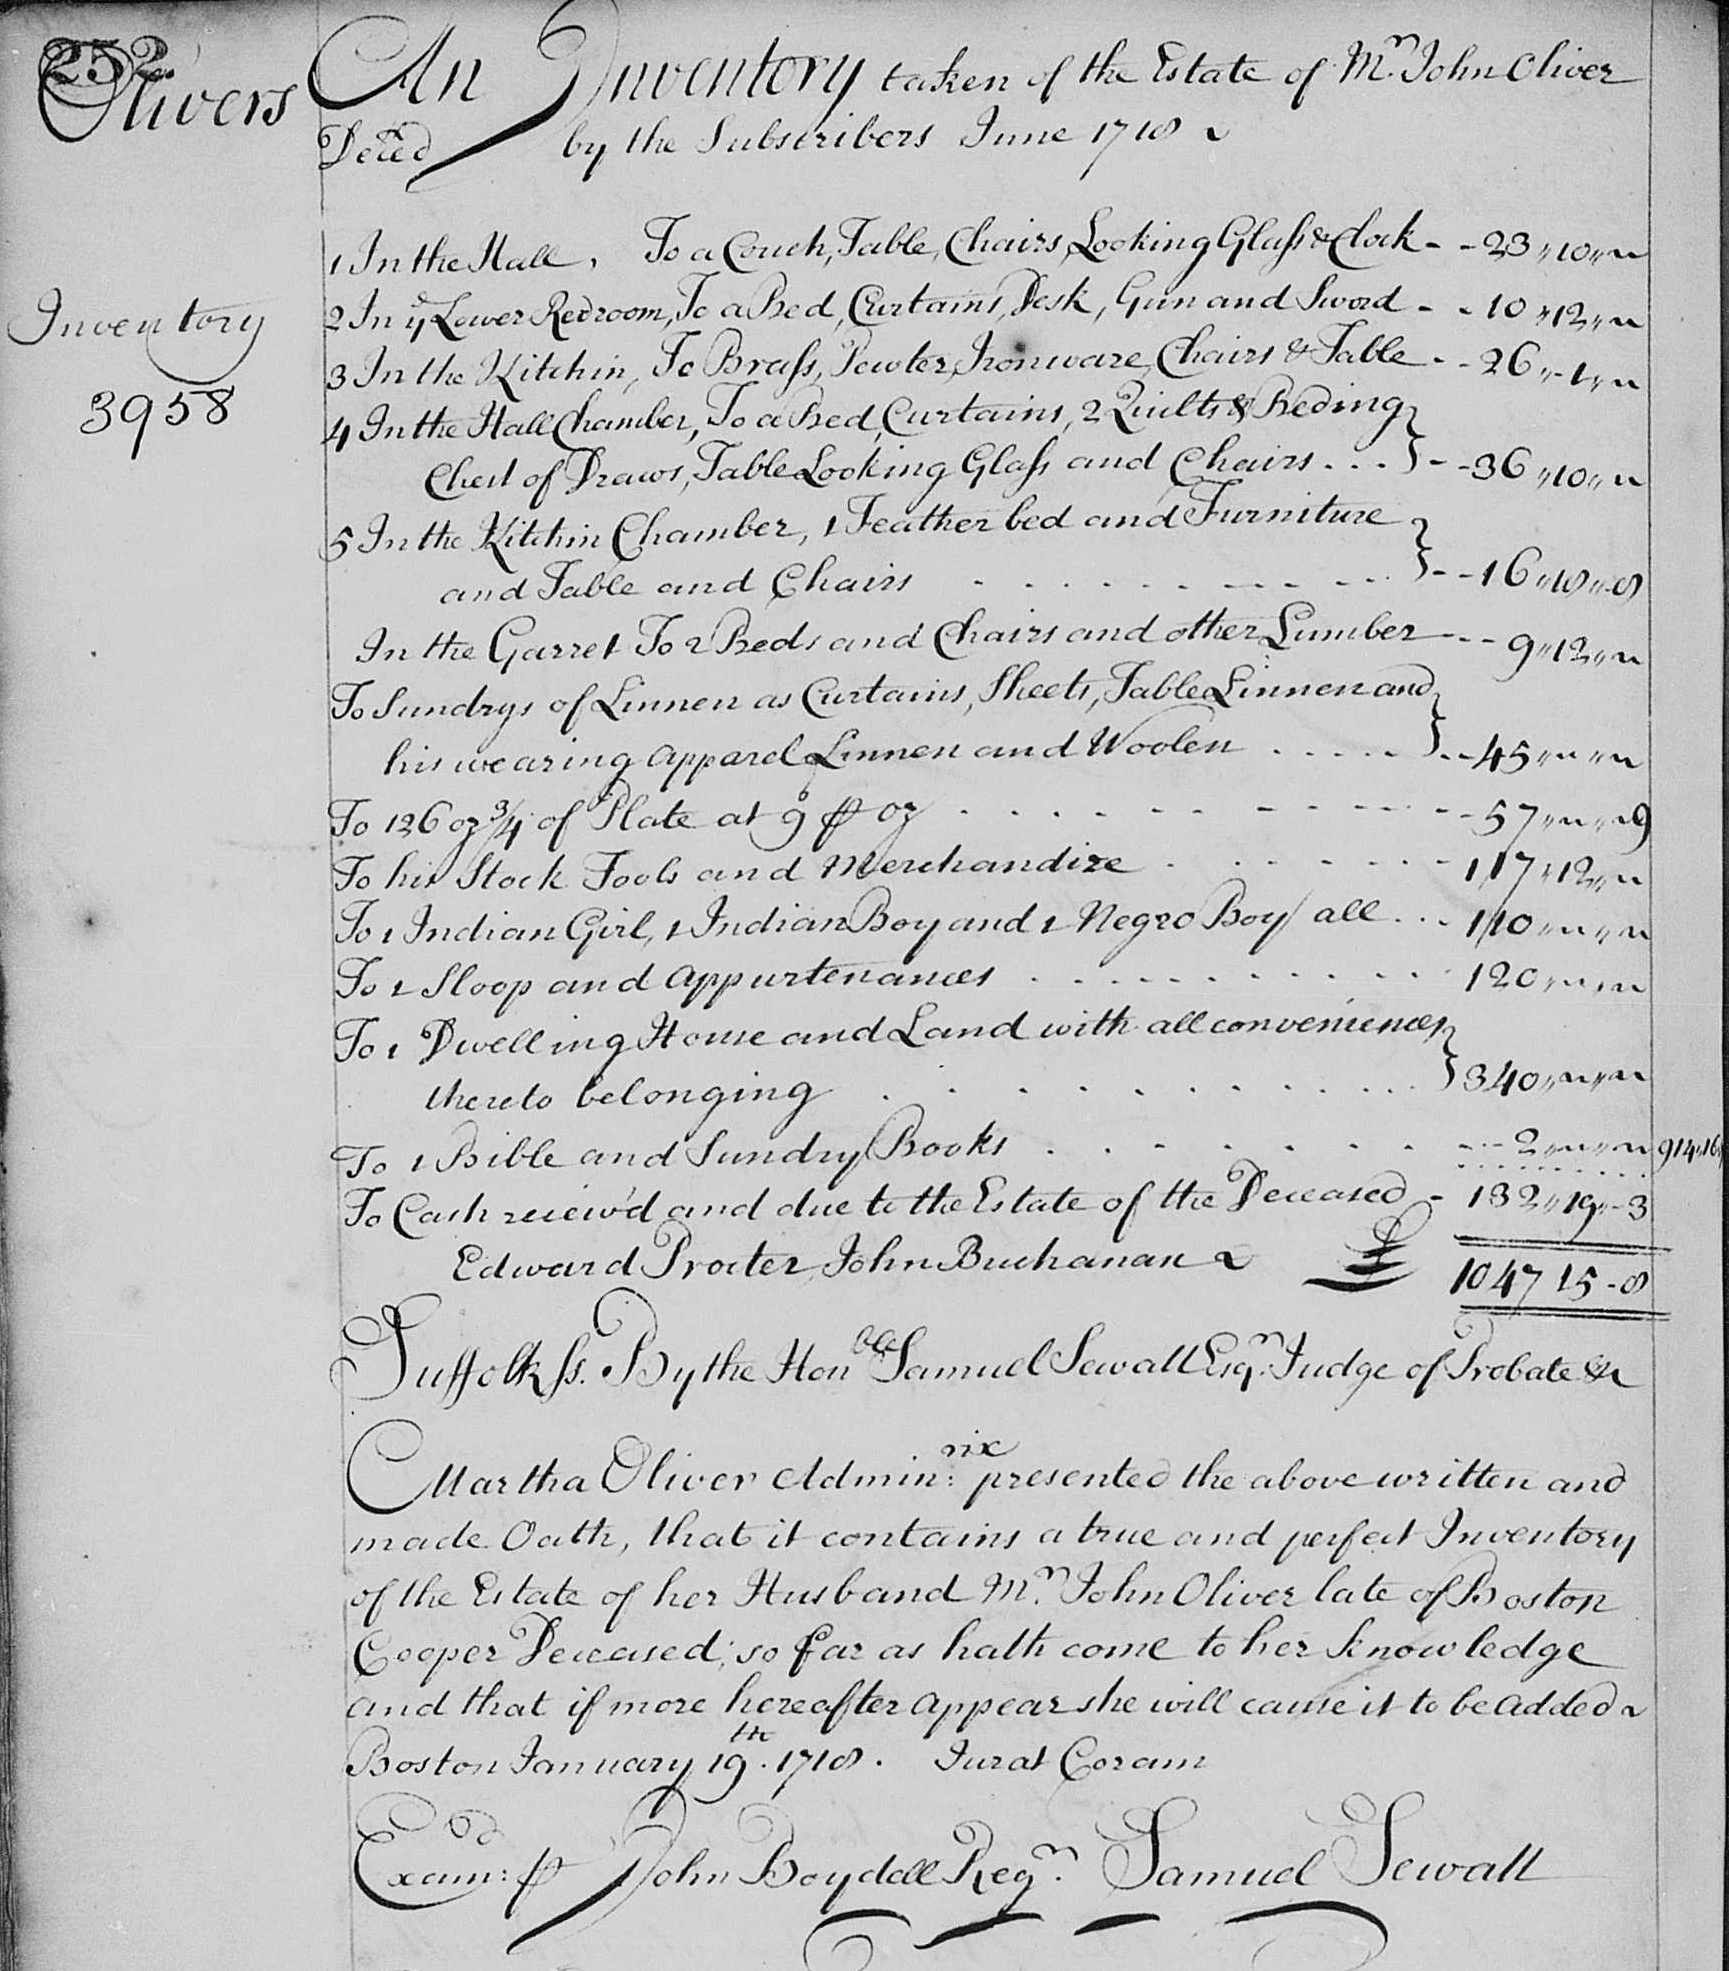 252.
Olivers
An Inventory taken of the Estate of Mr. John Oliver
Deced by the Subscribers June 1718
Inventory
3958
1 In the Hall, To a Couch, Table, Chairs, Looking Glass & Clock - - 23 ,, 10 ,, ~
2 In ye Lower Bedroom, To a Bed, Curtains, Desk, Gun and Sword - - 10 ,, 12 ,, ~
3 In the Kitchin, To Brass, Pewter, Ironware, Chairs & Table - - 26 ,, 1 ,, ~
4 In the Hall Chamber, To a Bed, Curtains, 2 Quilts & Beding
Chest of Draws, Table Looking Glass and Chairs . . . } - - 36 ,, 10 ,, ~
5 In the Kitchin Chamber, 1 Feather bed and Furniture
and Table and Chairs . . . } - - 16 ,, 18 ,, 8
In the Garret To 2 Beds and Chairs and other Lumber - - - 9 ,, 12 ,, ~
To Sundrys of Linnen as Curtains, Sheets, Table Linnen and
his wearing apparel Linnen and Woolen . . . } - - 45 ,, ~ ,, ~
To 126 oz 3/4 of Plate at 9s ⅌ oz . . . 57 ,, ~ ,, 9
To his Stock Tools and Merchandize . . . 117 ,, 12 ,, ~
To 1 Indian Girl, 1 Indian Boy and 1 Negro Boy all . . . 110 ,, ~ ,, ~
To 1 Sloop and appurtenances . . . 120 ,, ~ ,, ~
To 1 Dwelling House and Land with all conveniences
thereto belonging . . . } 340 ,, ~ ,, ~
To 1 Bible and Sundry Books . . . 2 ,, ~ ,, ~ 914 ,, 16
To Cash reciev'd and due to the Estate of the Deceased - 132 ,, 19 ,, 3
Edward Procter John Buchanan £ 1047 15 - 8
Suffolk ss. By the Honble Samuel Sewall Esqr. Judge of Probate &c
Martha Oliver Admin:rix presented the above written and
made Oath, that it contains a true and perfect Inventory
of the Estate of her Husband Mr. John Oliver late of Boston
Cooper Deceased; so far as hath come to her knowledge
and that if more hereafter appear she will cause it to be added
Boston January 19th. 1718. Jurat Coram
Exam:d ⅌ John Boydell Regr. Samuel Sewall